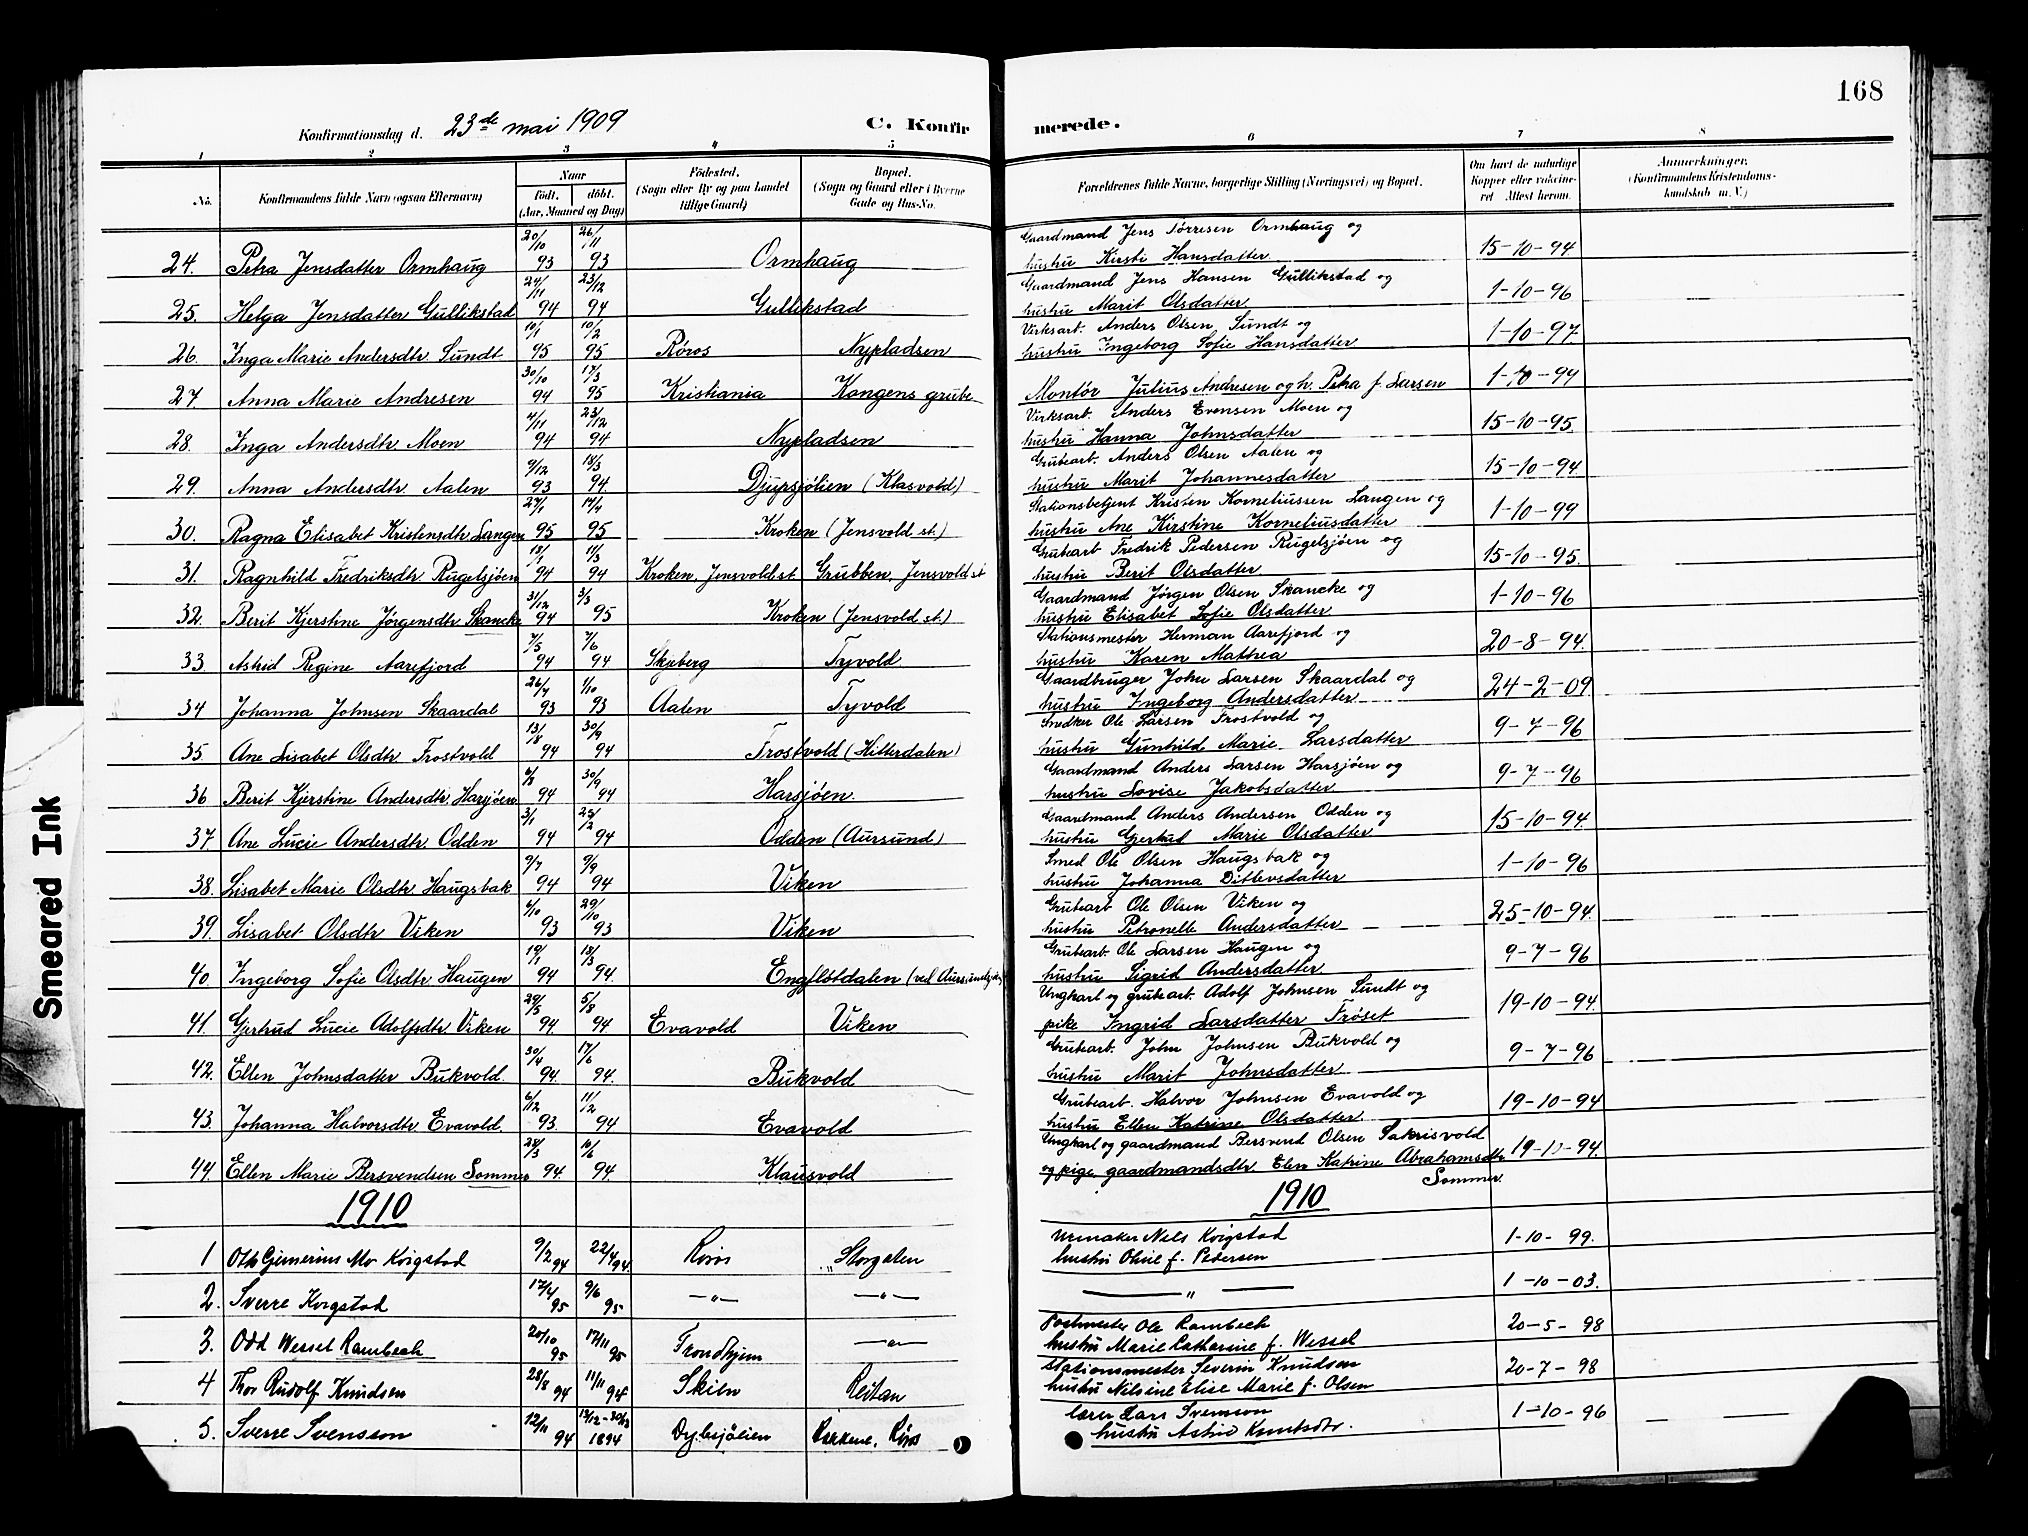 168
Konfirmationsdag d. 23de mai 1909
C. Konfirmerede.
1 2 3 4 5 6 7 8
No.
Konfirmandens fulde Navn (ogsaa Efternavn)
Naar
født. døbt.
(Aar, Maaned og Dag)
Fødested.
(Sogn eller By og paa Landet tillige Gaard)
Bopæl.
(Sogn og Gaard eller i Byerne Gade og Hus-No.
Forældrenes fulde Navne, borgerlige Stilling (Næringsvei) og Bopæl.
Om havt de naturlige Kopper eller vakcineret. Attest herom.
Anmerkninger.
(Konfirmandens Kristendomskundskab m. V.)
24. Petra Jensdatter Ormhaug 20/10 93 26/11 93 Ormhaug Gaardmand Jens Tørresen Ormhaug og hustru Kirsti Hansdatter 15-10-94
25. Helga Jensdatter Gullikstad 24/11 94 23/12 94 Gullikstad Gaardmand Jens Hansen Gullikstad og hustru Marit Olsdatter 1-10-96
26. Inga Marie Andersdtr Sundt 10/1 95 10/2 95 Røros Nypladsen Virksarb. Anders Olsen Sundt og hustru Ingeborg Sofie Hansdatter 1-10-97
27. Anna Marie Andresen 30/10 94 17/3 95 Kristiania Kongens grube Montør Julius Andresen og h. Petra f. Larsen 1-10-99
28. Inga Andersdtr Moen 4/11 94 23/12 94 Nypladsen Virksarb. Anders Evensen Moen og hustru Hanna Johnsdatter 15-10-95
29. Anna Andersdtr Aalen 9/12 93 18/3 94 Djupsjølien (Klasvold) Grubearb. Anders Olsen Aalen og hustru Marit Johannesdatter 15-10-94
30. Ragna Elisabet Kristensdtr Langen 27/1 95 14/4 95 Kroken (Jensvold st.) Stationsbetjent Kristen Korneliussen Langen og hustru Ane Kirstine Korneliusdatter 1-10-99
31. Ragnhild Fredriksdtr Rugelsjøen 94 11/3 94 Kroken, Jensvold st Grubben, Jensvold st Grubearb Fredrik Pedersen Rugelsjøen og hustru Berit Olsdatter 15-10-95
32. Berit Kjerstine Jørgensdtr Skancke 31/12 94 3/3 95 Kroken (Jensvold st.) Gaardmand Jørgen Olsen Skancke og hustru Elisabet Sofie Olsdatter 1-10-96
33. Astrid Regine Aarefjord 7/5 94 7/6 94 Skjeberg Tyvold Stationsmester Herman Aarefjord og hustru Karen Mathea 20-8-94
34 Johanna Johnsen Skaardal 26/7 93 1/10 93 Aalen Tyvold Gaardbruger John Larsen Skaardal og hustru Ingeborg Andersdatter 24-2-09
35. Ane Lisabet Olsdtr Frostvold 13/8 94 30/9 94 Frostvold (Hitterdalen) Snedker Ole Larsen Frostvold og hustru Gunhild Marie Larsdatter 9-7-96
36 Berit Kjerstine Andersdtr Harsjøen 6/8 94 30/9 94 Harsjøen Gaardmand Anders Larsen Harsjøen og hustru Lovise Jakobsdatter 9-7-96
37. Ane Lucie Andersdtr Odden 3/1 94 25/2 94 Odden (Aursund) Gaardmand Anders Andersen Odden og hustru Gjertrud Marie Olsdatter 15-10-94
38. Lisabet Marie Olsdtr Haugsbak 9/7 94 9/9 94 Viken Smed Ole Olsen Haugsbak og hustru Johanna Ditlevsdatter 1-10-96
39. Lisabet Olsdtr Viken 6/10 93 29/10 93 Viken Grubearb Ole Olsen Viken og hustru Petronelle Andersdatter 25-10-94
40. Ingeborg Sofie Olsdtr Haugen 19/1 94 18/3 94. Grubearb. Ole Larsen Haugen og hustru Sigrid Andersdatter 9-7-96
41. Gjertrud Lucie Adolfsdtr Viken 29/5 94. 5/8 94 Evavold Viken Ungkarl og grubearb. Adolf Johnsen Sundt og pike Ingrid Larsdatter Frøset 19-10-94
42. Ellen Johnsdatter Bukvold 30/4 94. 17/6 94. Bukvold Grubearb. John Johnsen Bukvold og hustru Marit Johnsdatter 9-7-96
43. Johanna Halvorsdtr Evavold. 6/12 93. 11/2 94 Evavold Grubearb. Halvor Johnsen Evavold og hustru Ellen Katrine Olsdatter 19-10-94
44. Ellen Marie Bersvendsen Sommer 28/3 94. 10/6 94. Klausvold Ungkarl og gaardmand Bersvend Olsen Sakrisvold og pige gaardmandsdtr Elen Katrine Abrahamsdtr Sommer 19-10-94.
1910 1910
1 Kvigstad 9/2 94 22/4 94 Røros Storgaten Urmaker Nels Kvigstad hustru Oline f. Pedersen 1-10-99.
2. Sverre Kvigstad 17/4 95 9/6 95 —"— —"— —"— 1-10-03.
3. Odd Wessel Rambech 20/10 95 17/11 95 Trondhjem —"— Postmester Ole Rambech hustru Marie Catharine f. Wessel 20-5-98
4 Thor Rudolf Knudsen 28/8 94 11/11 94 Skien Reitan Stationsmester Severin Knudsen hustru Nilsine Elise Marie f. Olsen 20-7-98
5. Sverre Svensson 12/11 94 1894 Røros Lærer Lars Svensson hustru Astrid Knutsdtr. 1-10-96
Smeared Ink